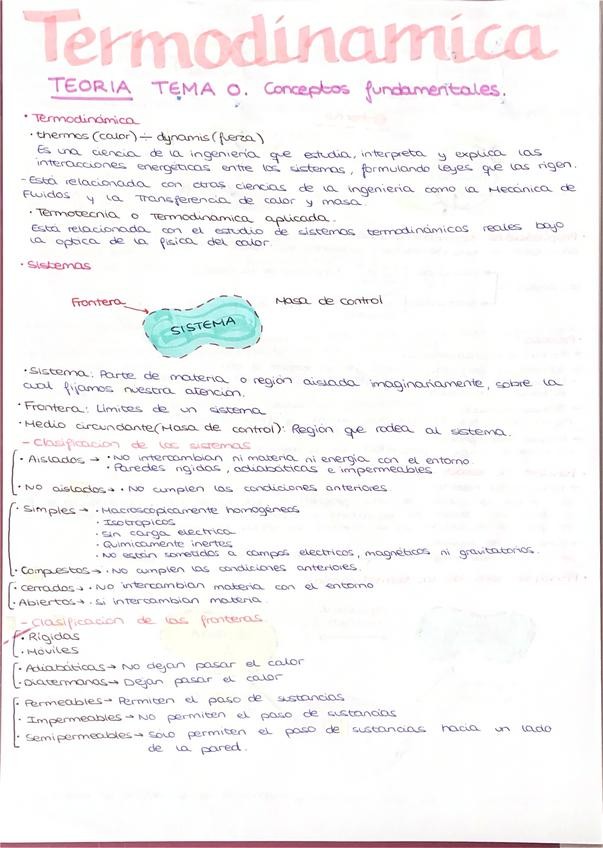 Termodínamica
TEORIA TEMA 0. Conceptos fundamentales.
· Termodinámica
· thermos (calor) ÷ dynamis (fuerza)
Es una ciencia de la ingeniería que estudia, interpreta y explica las
interacciones energéticas entre los sistemas, formulando leyes que las rigen.
- Está relacionada con otras ciencias de la ingeniería como la Mecánica de
Fluidos y la Transferencia de calor y masa.
· Termotecnia o Termodinámica aplicada.
Está relacionada con el estudio de sistemas termodinámicos reales bajo
la optica de la fisica del calor.
· Sistemas
Frontera
Masa de control
SISTEMA
· Sistema: Parte de materia o región aislada imaginariamente, sobre la
cual fijamos nuestra atencion.
· Frontera: Límites de un sistema
· Medio circundante (Masa de control): Región que rodea al sistema.
- Clasificacion de los sistemas
· Aislados → · No intercambian ni materia ni energía con el entorno.
· Paredes rigidas, adiabáticas e impermeables
· No aislados → · No cumplen las condiciones anteriores
· Simples → · Macroscópicamente homogéneos
· Isotropicos
· Sin carga electrica
· Quimicamente inertes
· No están sometidos a campos electricos, magnéticos ni gravitatorios.
· Compuestos → · No cumplen las condiciones anteriores.
· Cerrados → · No intercambian materia con el entorno
· Abiertos → · Si intercambian materia.
- Clasificacion de las fronteras
· Rígidas
· Móviles
· Adiabáticas → No dejan pasar el calor
· Diatermanas → Dejan pasar el calor
· Permeables → Permiten el paso de sustancias
· Impermeables → No permiten el paso de sustancias
· Semipermeables → Solo permiten el paso de sustancias hacia un lado
de la pared.